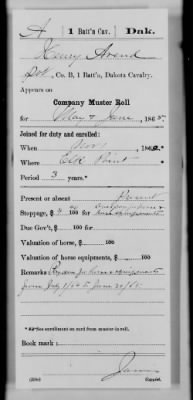 A | 1 Batt'n Cav. | Dak.
Henry Arend
Pvt., Co. B, 1 Batt'n, Dakota Cavalry.
Appears on
Company Muster Roll
for May & June, 1865.
Joined for duty and enrolled:
When Nov 1862.
Where Elk Point
Period 3 years.*
Present or absent Present
Stoppage, $ 100 for
Due Gov't, $ 100 for
Valuation of horse, $ 100
Valuation of horse equipments, $ 100
Remarks: for horse & equipments
from July 1/64 to June 30/65
*See enrollment on card from muster-in roll.
Book mark:
James
Copyist.